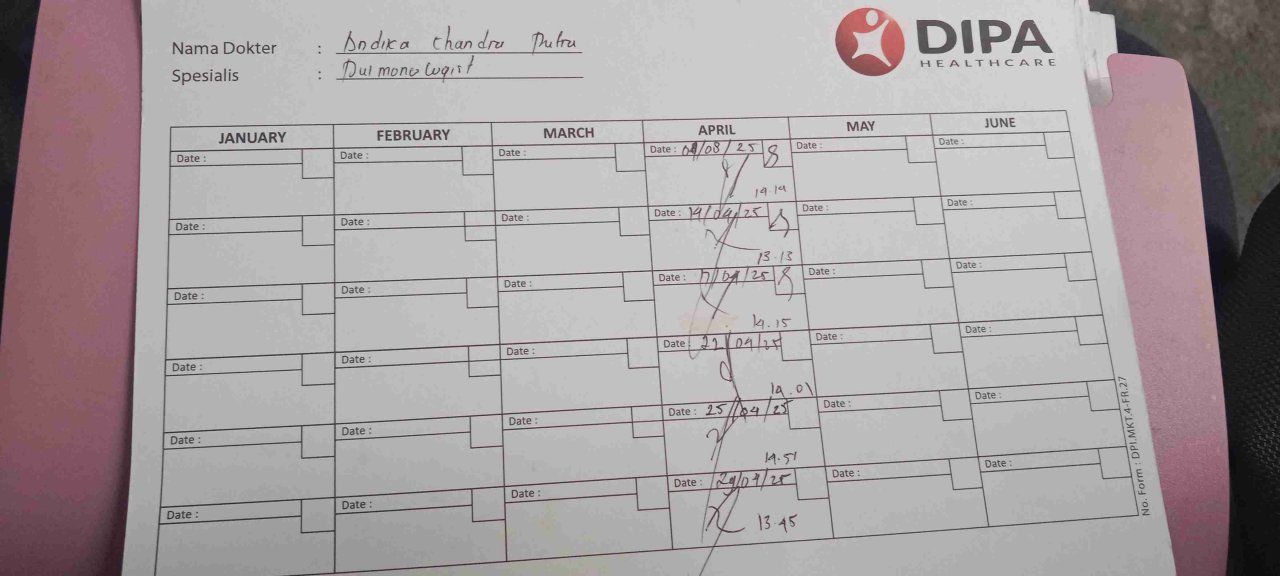 Nama Dokter : Andika Chandra Putra
Spesialis : Pulmonologist
DIPA
HEALTHCARE
JANUARY FEBRUARY MARCH APRIL MAY JUNE
Date : Date : Date : Date : 09/08/25 Date : Date :
14.14
Date : Date : Date : Date : 14/04/25 Date : Date :
13.13
Date : Date : Date : Date : 17/04/25 Date : Date :
14.15
Date : Date : Date : Date : 22/04/25 Date : Date :
14.01
Date : Date : Date : Date : 25/04/25 Date : Date :
14.51
Date : Date : Date : Date : 29/04/25 Date : Date :
13.45
No. Form : DPI.MKT.4-FR.27